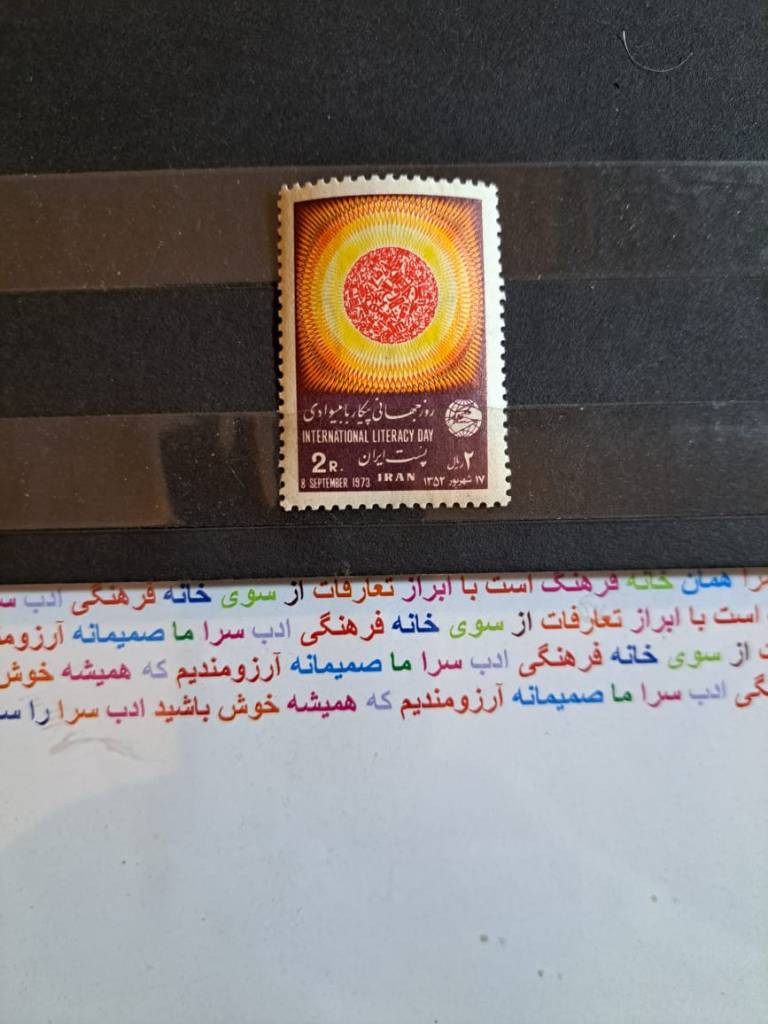 روز جهانی پیکار با بیسوادی
INTERNATIONAL LITERACY DAY
2R. پست ایران ۲ ریال
8 SEPTEMBER 1973 IRAN ۱۷ شهریور ۱۳۵۲
همان خانه فرهنگ است با ابراز تعارفات از سوی خانه فرهنگی ادب
است با ابراز تعارفات از سوی خانه فرهنگی ادب سرا ما صمیمانه
از سوی خانه فرهنگی ادب سرا ما صمیمانه آرزومندیم که همیشه خوش
ادب سرا ما صمیمانه آرزومندیم که همیشه خوش باشید ادب سرا را